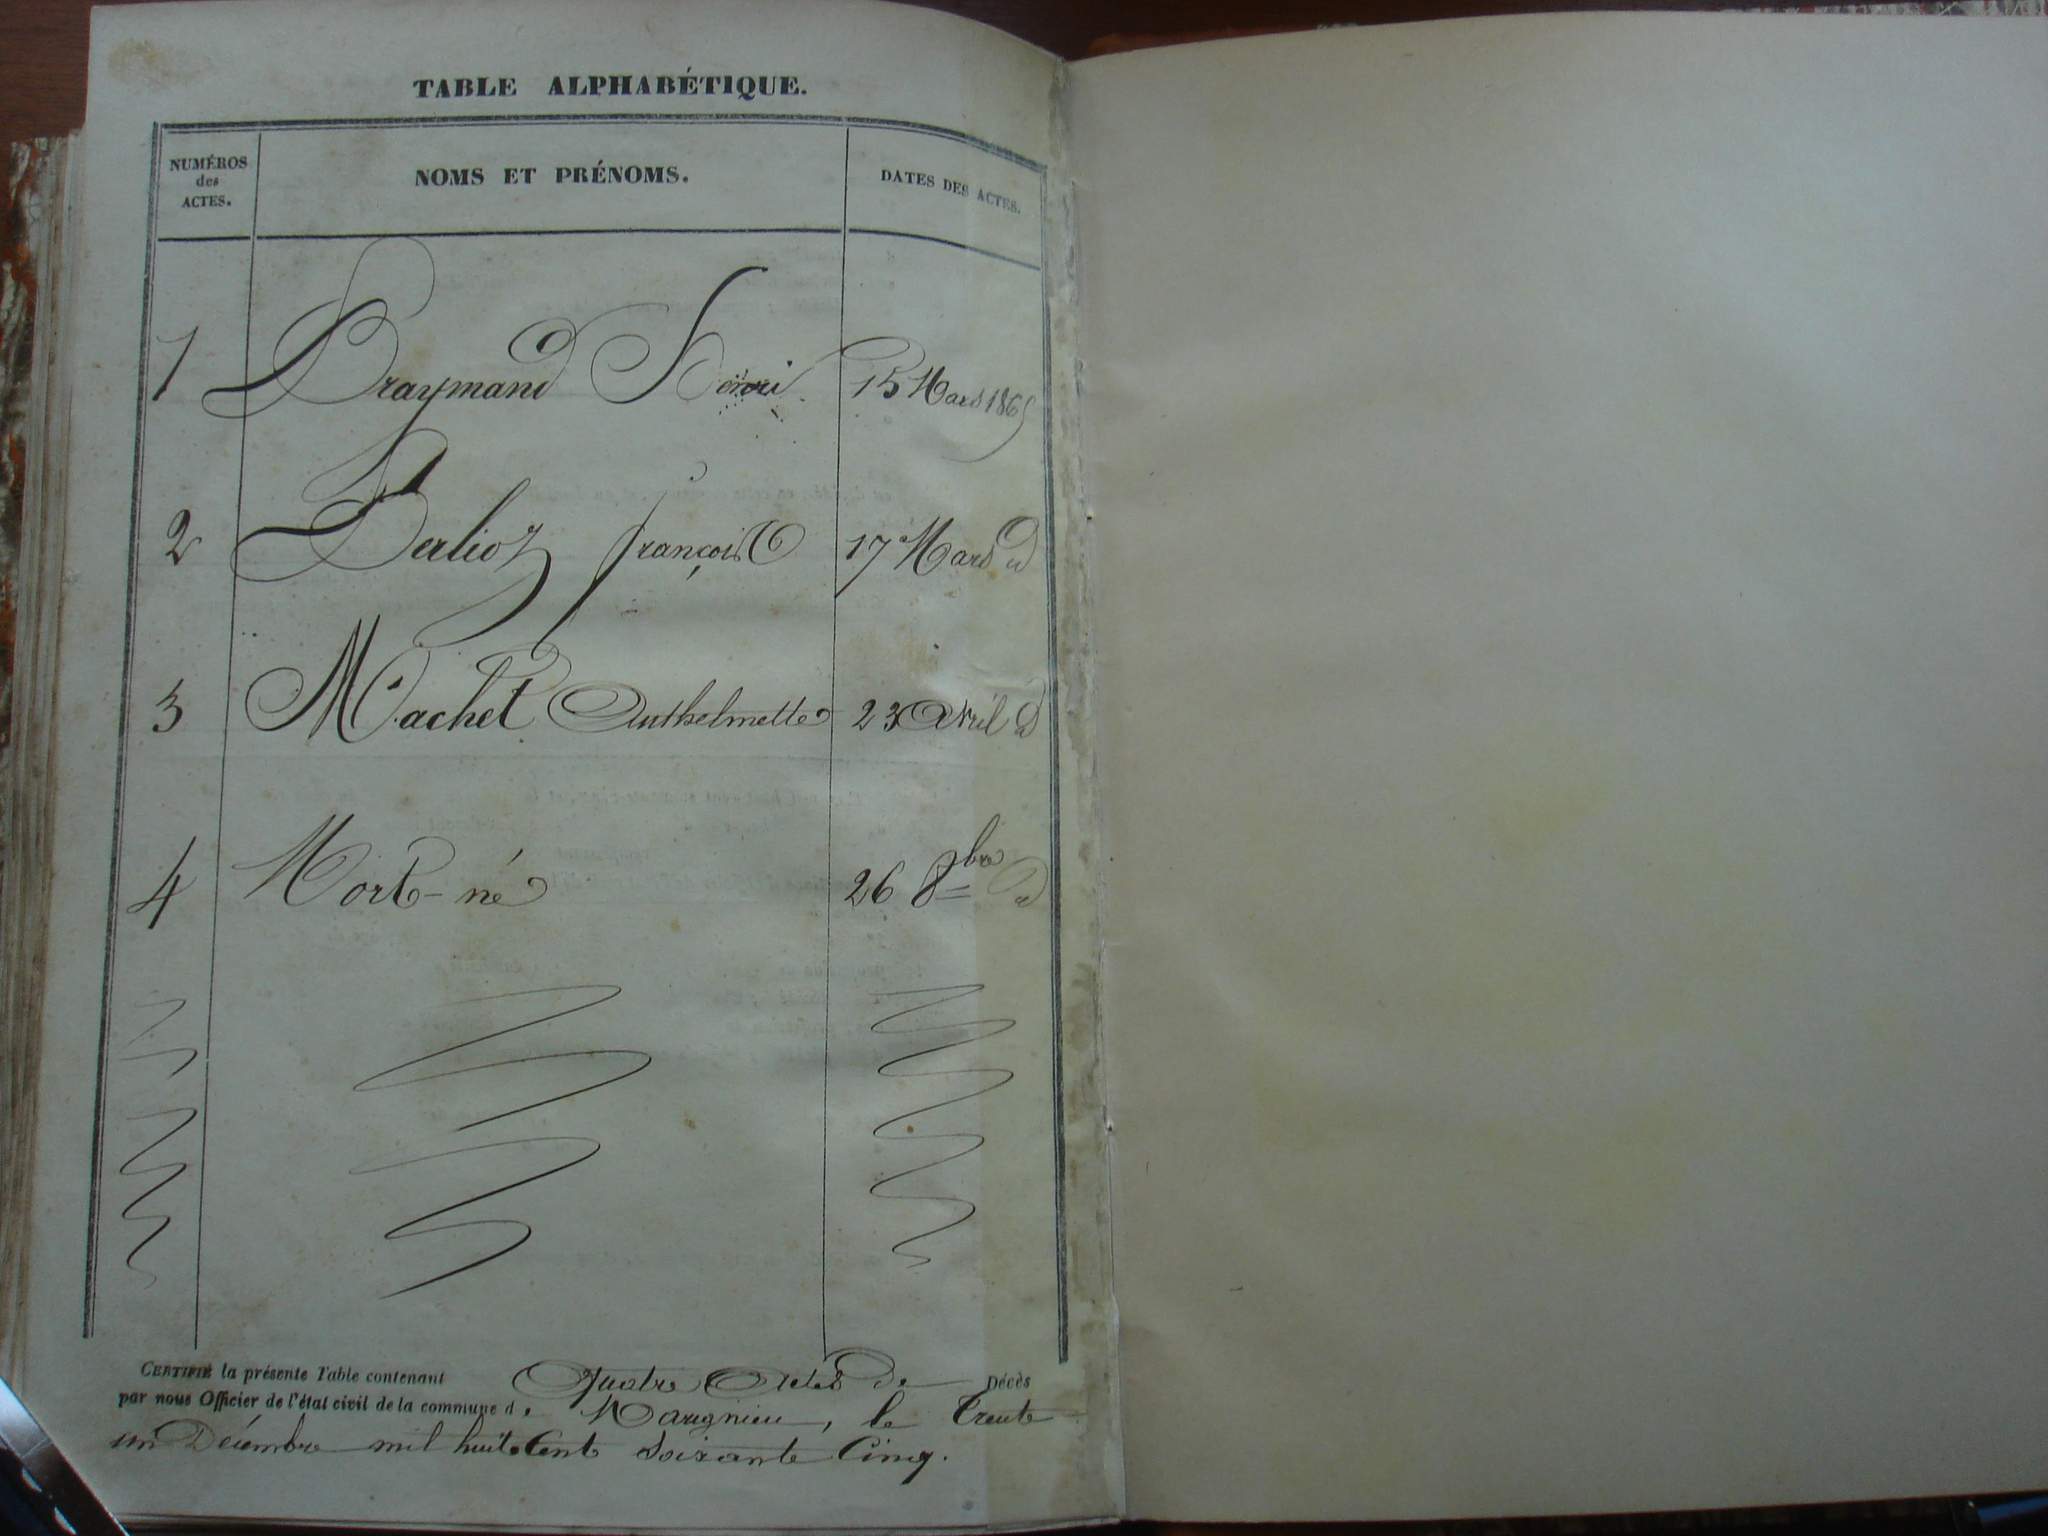 TABLE ALPHABÉTIQUE.
NUMÉROS des ACTES. NOMS ET PRÉNOMS. DATES DES ACTES.
1 Braymand Henri 15 Mars 1865
2 Berlioz françois 17 Mars d
3 Machet Anthelmette 23 Avril d
4 Mort-né 26 8bre d
CERTIFIÉ la présente Table contenant Quatre Actes de Décès
par nous Officier de l'état civil de la commune de Marignieu, le trente
un Décembre mil huit Cent Soixante Cinq.